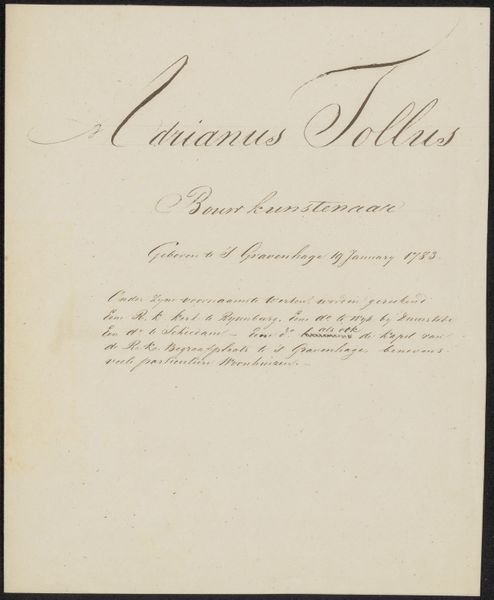 Adrianus Tollus
Bouwkunstenaar
Geboren te 'S Gravenhage 19 January 1783.
Onder zijne voornaamste werken worden gerekend
Eene R. k. kerk te Rynsburg. Eene do te Wyk by Duurstede
Een do te Schiedam – Eene do als ook de kapel van
de R. k. Begraafplaats te 's Gravenhage, benevens
veele particuliere Woonhuizen. –